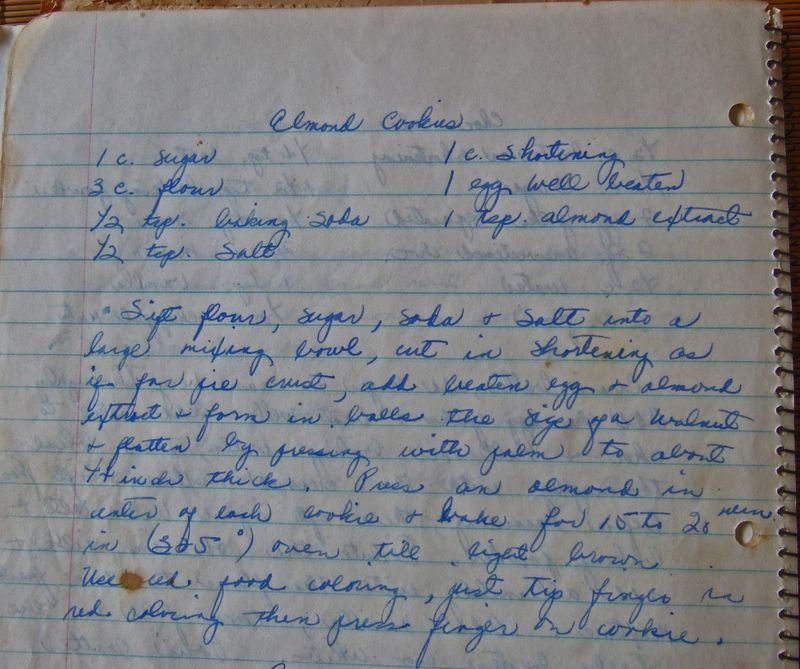 Almond Cookies
1 c. sugar 1 c. Shortening
3 c. flour 1 egg well beaten
1/2 tsp. baking soda 1 tsp. almond extract
1/2 tsp. Salt
Sift flour, sugar, soda + salt into a
large mixing bowl, cut in shortening as
if for pie crust, add beaten egg + almond
extract + form in balls the size of a walnut
+ flatten by pressing with palm to about
1/4 inch thick. Press an almond in
center of each cookie + bake for 15 to 20 min.
in (325°) oven till light brown
Use red food coloring, just tip finger in
red coloring then press finger on cookie.